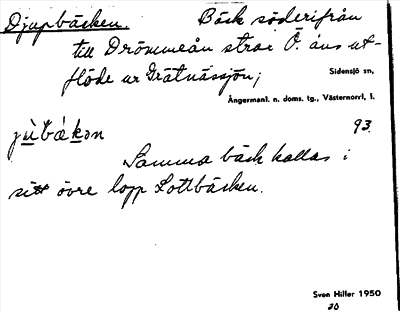 Djupbäcken. Bäck söderifrån
till Drömmeån strax Ö. åns ut-
flöde ur Grätnässjön;
Sidensjö sn,
Ångermanl. n. doms. tg., Västernorrl, l.
jùbák̲ən 93.
Samma bäck kallas i
sitt övre lopp Lottbäcken.
Sven Hiller 1950
20